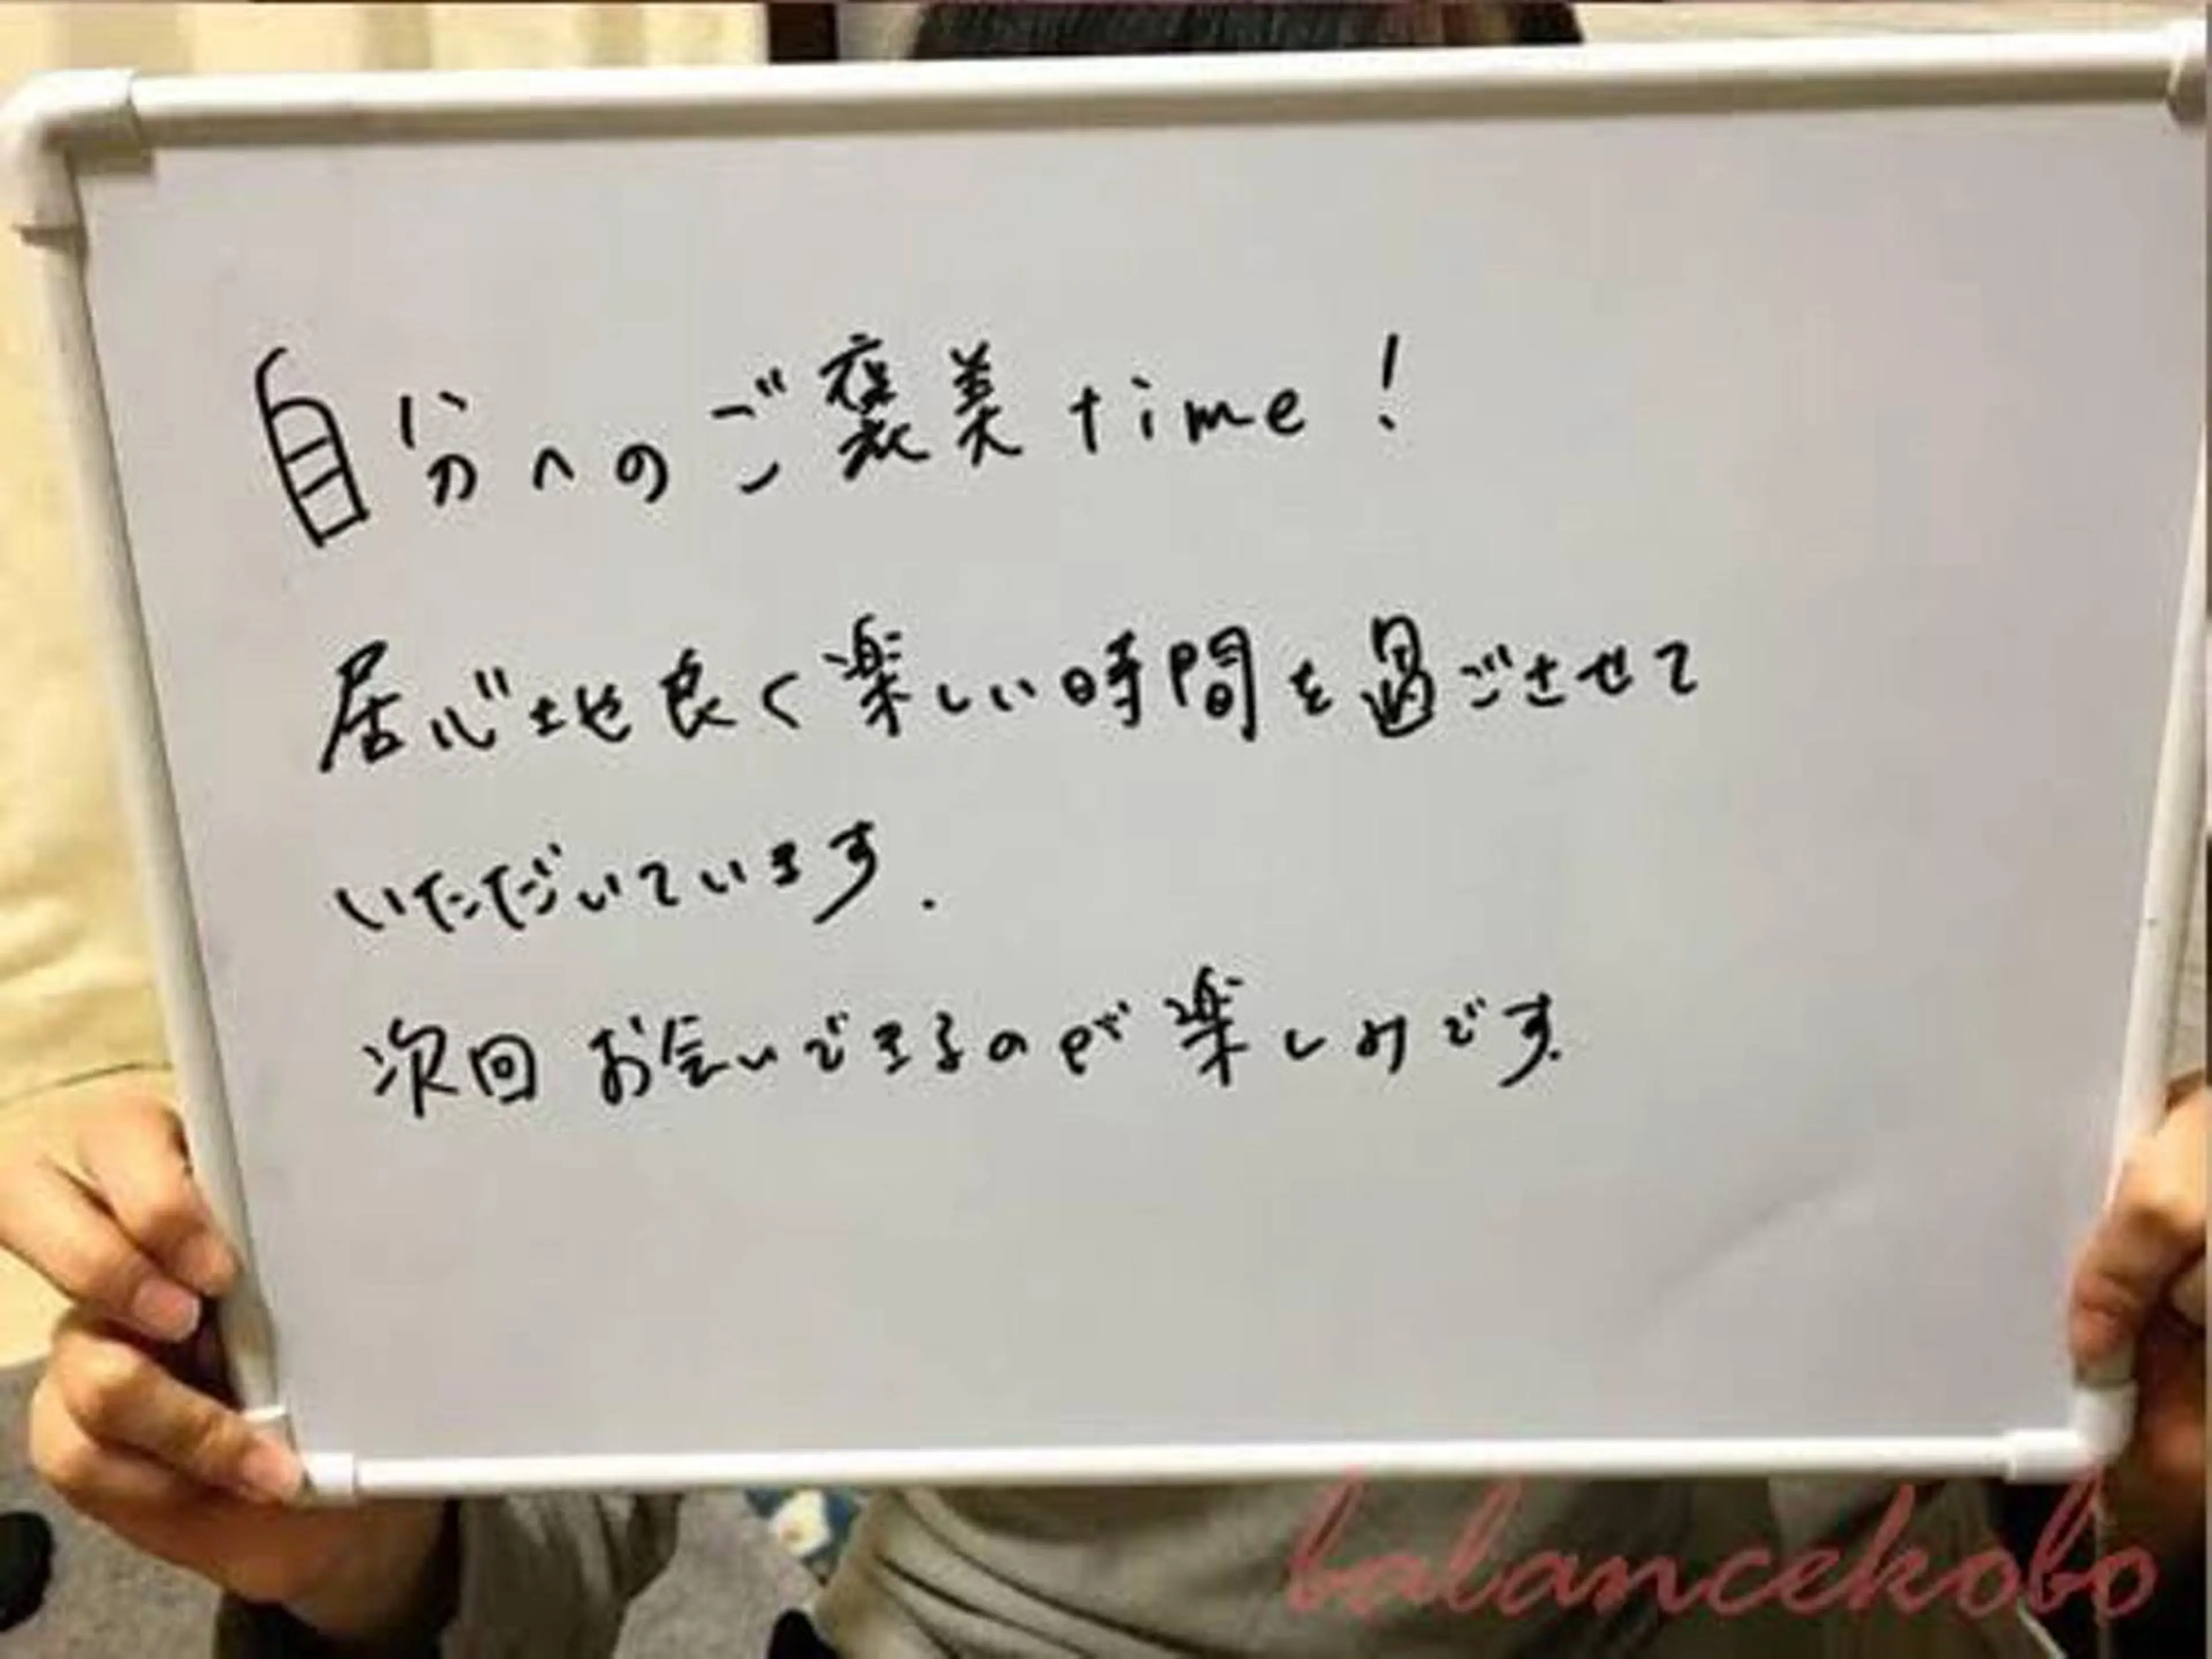 自分へのご褒美time!
居心地良く楽しい時間を過ごさせて
いただいています.
次回お会いできるのが楽しみです.
balancekobo